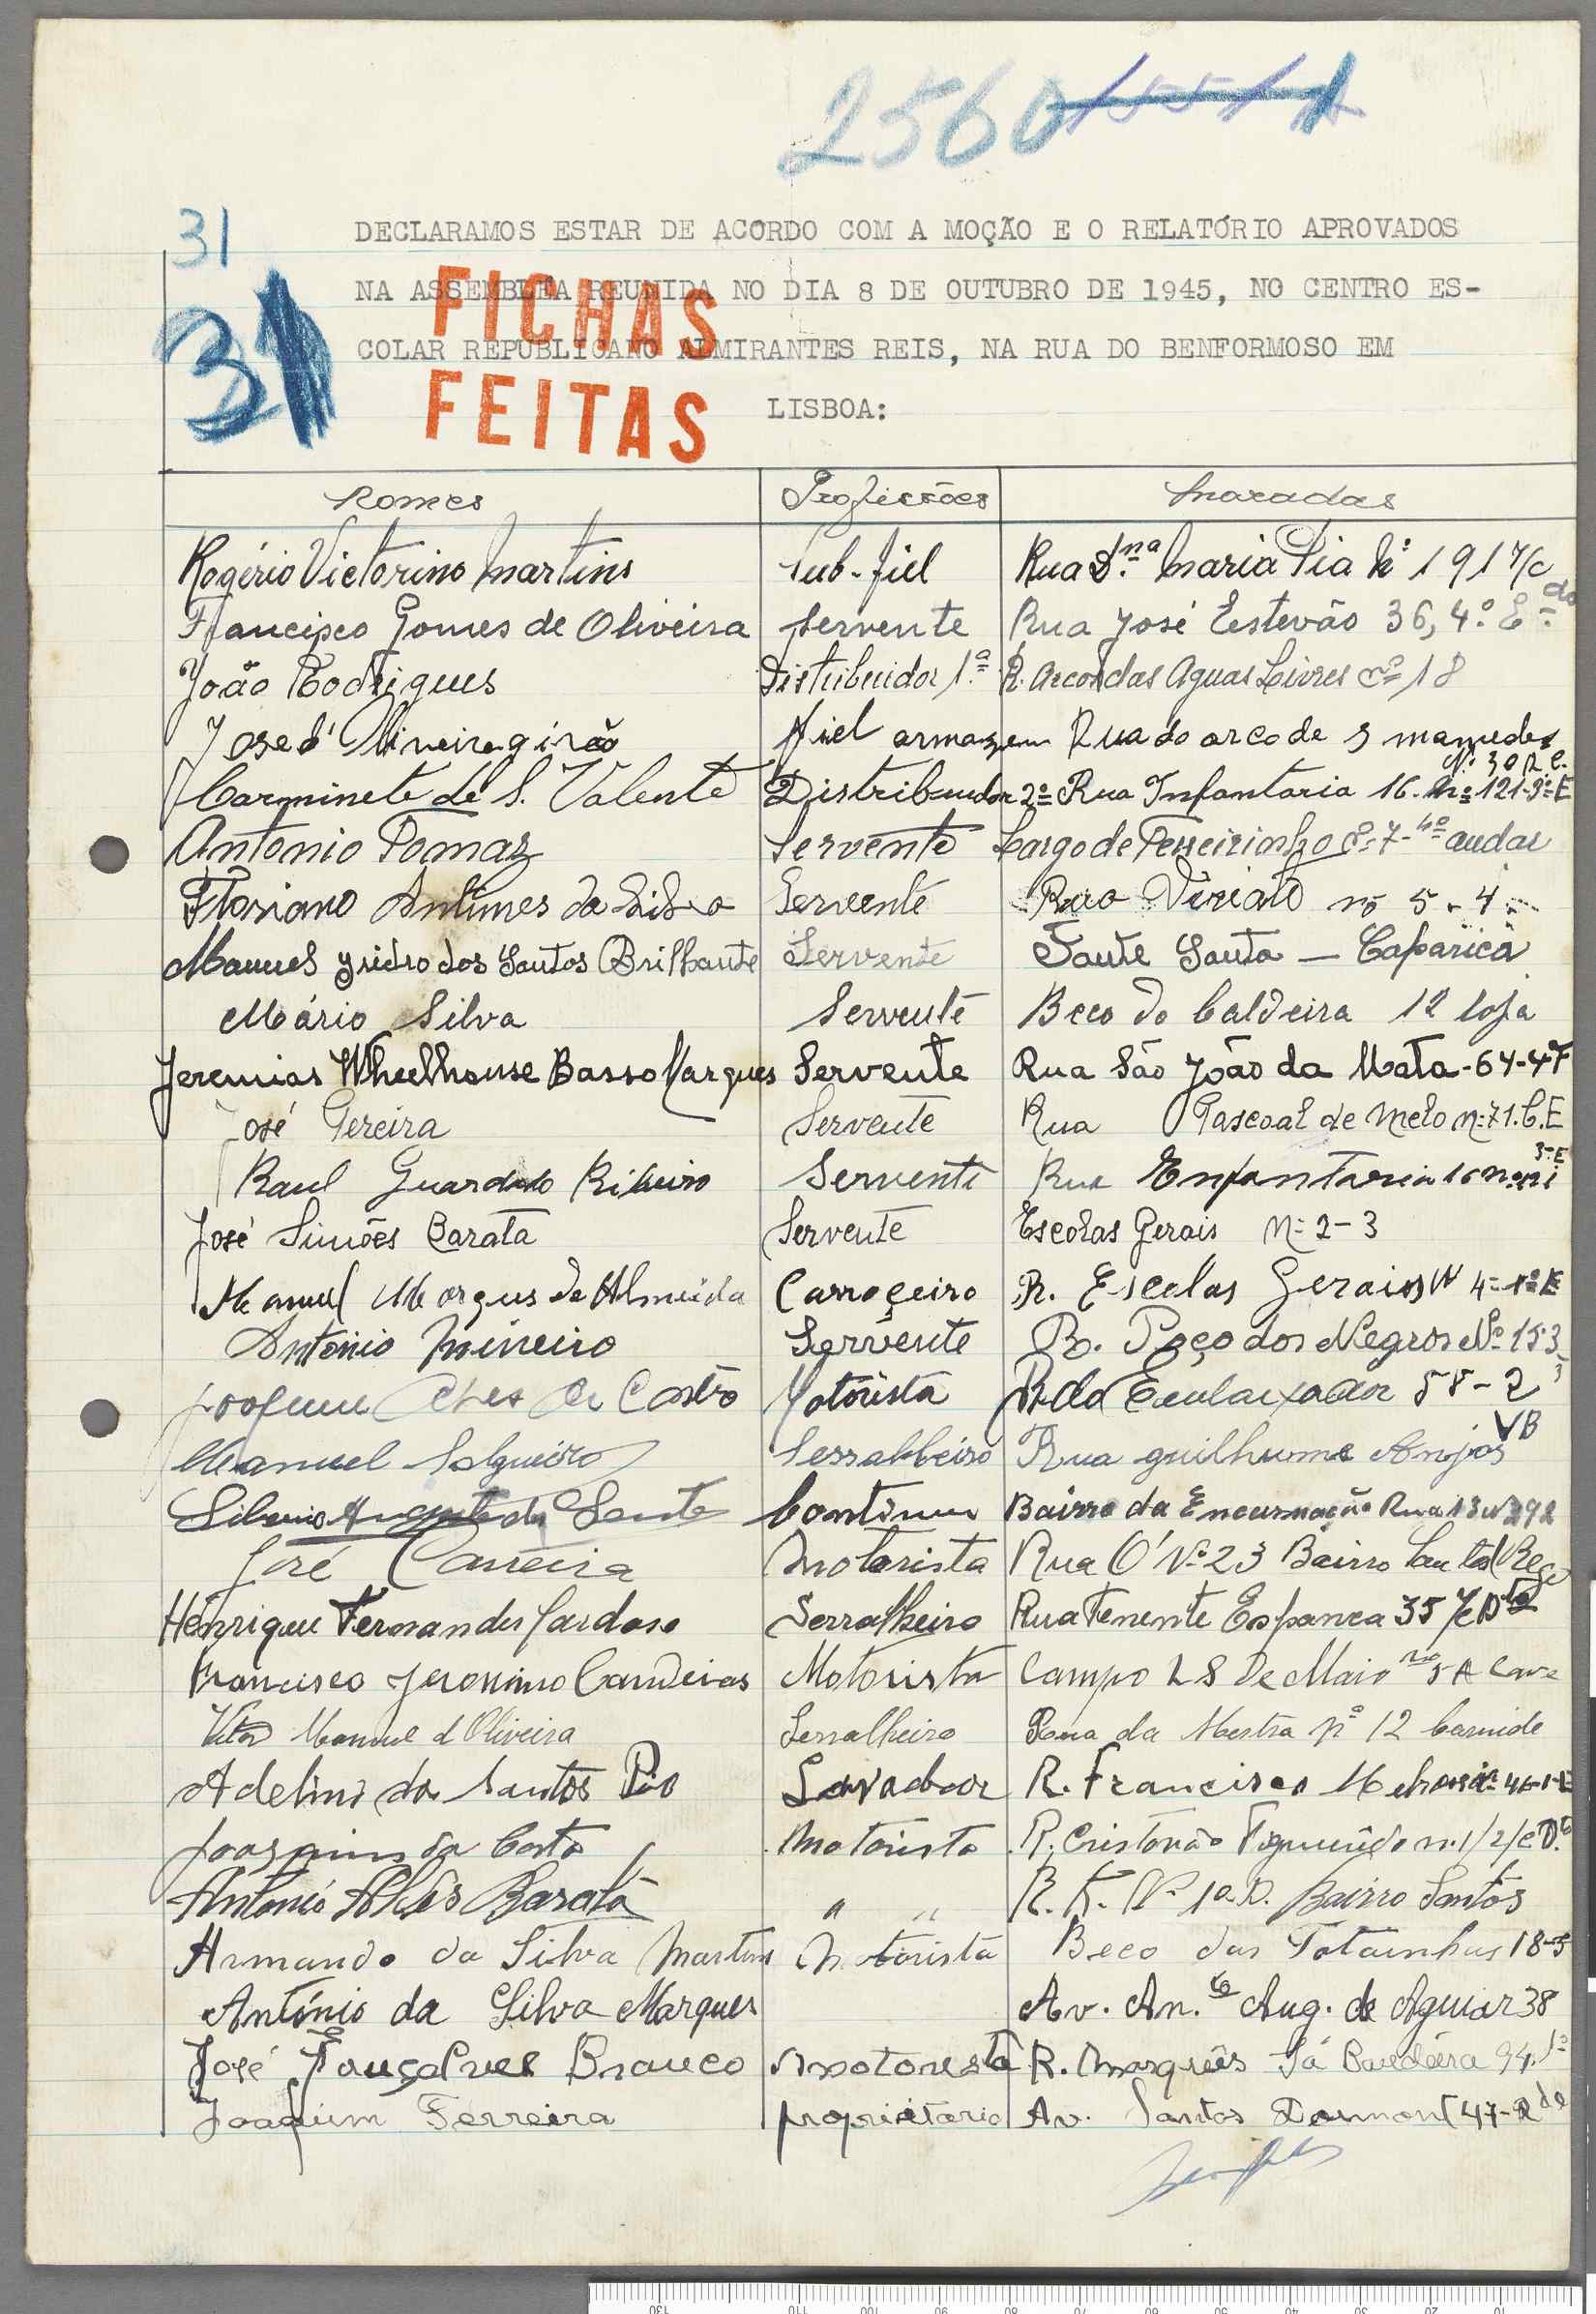 2560
31
DECLARAMOS ESTAR DE ACORDO COM A MOÇÃO E O RELATÓRIO APROVADOS
NA ASSEMBLÉA REUNIDA NO DIA 8 DE OUTUBRO DE 1945, NO CENTRO ES-
COLAR REPUBLICANO ALMIRANTES REIS, NA RUA DO BENFORMOSO EM
LISBOA:
FICHAS
FEITAS
31
Nomes Profissões Moradas
Rogério Victorino Martins Sub-fiel Rua D.na Maria Pia Nº 191 r/c
Francisco Gomes de Oliveira Servente Rua José Estevão 36, 4.º E
João Rodrigues Distribuidor 1.ª R. Arco das Aguas Livres nº 18
José d'Oliveira girão fiel armazem Rua do arco de S mamede
Nº 30 R C.
Carminete de S. Valente Distribuidor 2º Rua Infantaria 16. nº 121-3º-E
Antonio Tomaz Servente Largo de Terreirinho nº 7-4º andar
Floriano Antunes da Silva Servente Rua Viriato nº 5-4
Manuel ysidro dos Santos Brilhante Servente Fonte Santa — Caparica
Mário Silva Servente Beco do Caldeira 12 loja
Jeremias Wheelhouse Basso Marques Servente Rua São João da Mata-64-4º
José Pereira Servente Rua Pascoal de Melo nº 71. C.E
Raul Guardado Ribeiro Servente Rua Enfantaria 16 nº
3º E
José Simões Barata Servente Escolas Gerais Nº 2-3
Manuel Marques de Almeida Carroçeiro R. Escolas Gerais N 4-1º E
Antonio Mineiro Servente R. Poço dos Negros Nº 153
Alves de Castro Motorista R. do Embaixador 58-2
Manuel Salgueiro Serralheiro Rua guilhume Anjos VB
Augusto da Continuo Bairro da Encarnação Rua 13 nº 292
José Carreira Motorista Rua O' Nº 23 Bairro Santos Rego
Henrique Fernandes Cardoso Serralheiro Rua Tenente Espanca 35 r/c Dto
Francisco Jeronimo Candeias Motorista Campo 28 de Maio nº 5 A Cave
Vitor Manuel d'Oliveira Serralheiro da Mestra nº 12 Carnide
Adelino dos Santos Pió Lavador R. Francisco
Joaquim da Costa Motorista R. Cristovão n. 1/2 /c D.to
António Alves Barata " " R. K. Nº 1 a D. Bairro Santos
Armando da Silva Martins Motorista Beco das Fotainhas 18-3
António da Silva Marques Av. An.to Aug. de Aguiar 38
José Gonçalves Branco Motorista R. Marquês Sá Bandeira 94. 1º
Joaquim Ferreira proprietario Av. Santos Dumont 47-R